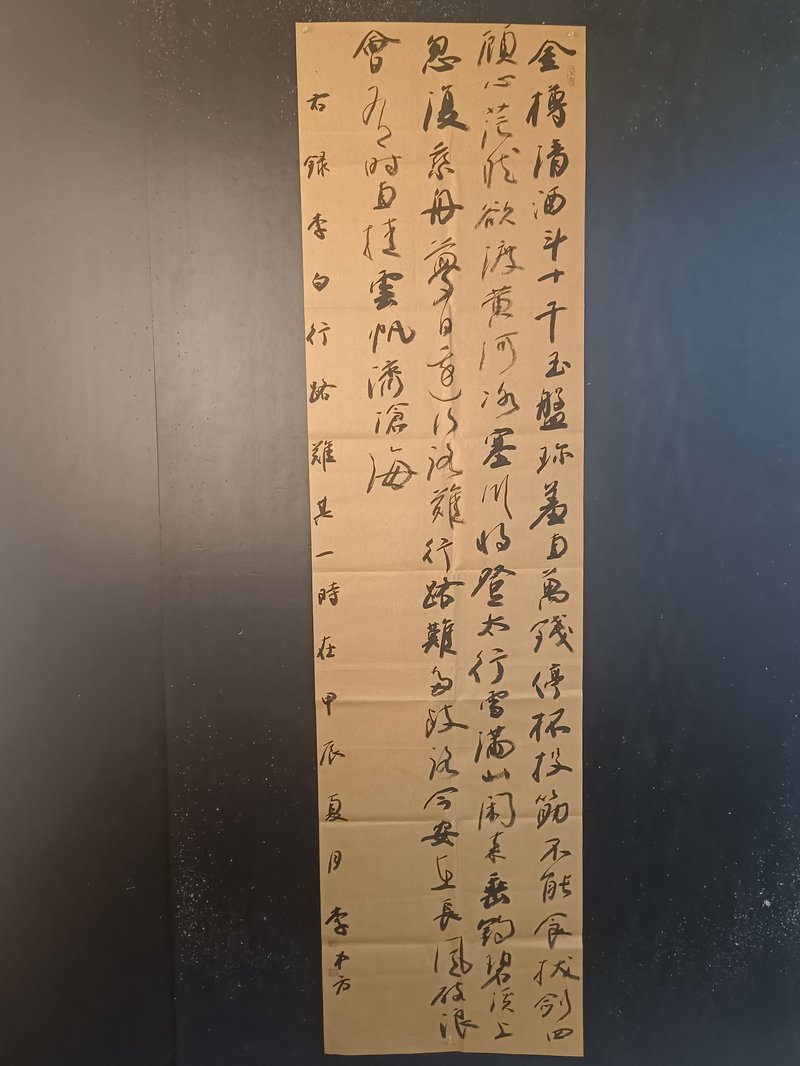 金樽清酒斗十千玉盤珍羞直萬錢停杯投筯不能食拔劍四
顧心茫然欲渡黄河冰塞川将登太行雪满山閑来垂釣碧溪上
忽復乘舟夢日邊行路難行路難多歧路今安在長風破浪
會有时直挂雲帆濟滄海
右録李白行路難其一時在甲辰夏月李